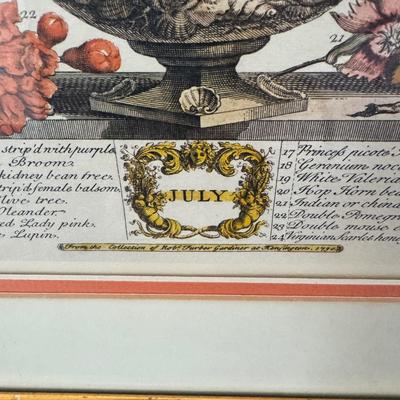 22
21
strip'd with purple
Broom
kidney bean tree
trip'd female balsom
live tree.
Oleander
ed Lady pink.
e Lupin.
JULY
17 Princess picote
18 Geranium noc
19 White Valeria
20 Hop Horn be
21 Indian or china
22 Double Pomegr
23 Double mouse e
24 Virginian scarlet hone
From the Collection of Robt. Furber Gardiner at Kensington. 1730